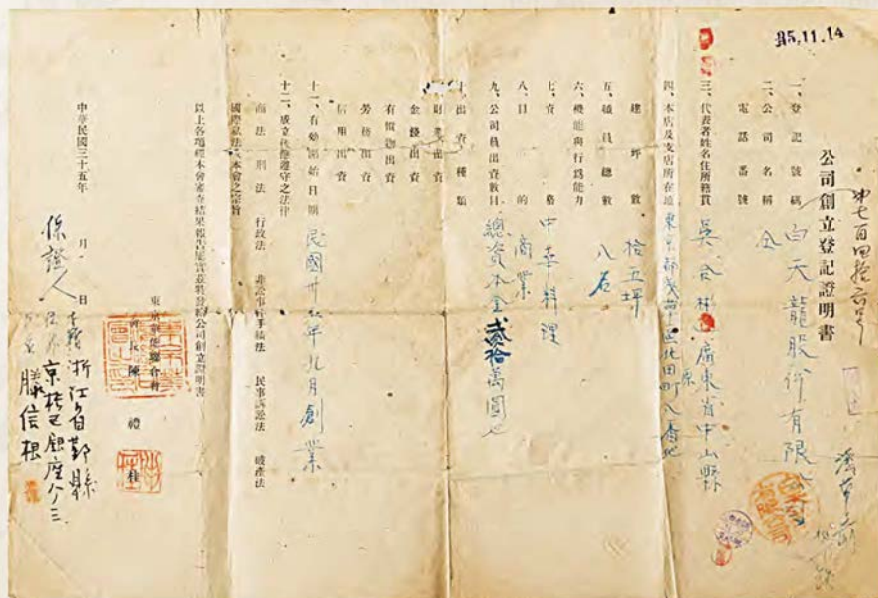 35.11.14
第七百四拾六号
公司創立登記證明書
一、登記號碼
白天龍股份有限公司
二、公司名稱 仝
電話番號
三、代表者姓名住所籍貫 吳合彬 廣東省中山縣
四、本店及支店所在地 東京都淺草區北田原町八番地
建坪數 拾五坪
五、職員總數 八名
六、機能與行爲能力
七、資格 中華料理
八、目的 商業
九、公司員出資數目 總資本金貳拾萬圓也
十、出資種類
財產出資
金錢出資
有價物出資
勞務出資
信用出資
十一、有効開始日期 民國卅五年九月創業
十二、成立後應遵守之法律
商法 刑法 行政法 非訟事件手續法 民事訴訟法 破產法
國際私法及本會之宗旨
以上各項經本會審查結果報告屬實並製發給公司創立證明書
東京華僑聯合會
會長 陳禮桂
中華民國三十五年 月 日
保證人
籍 浙江省鄞縣
住所 京橋區銀座八ノ三
滕信根